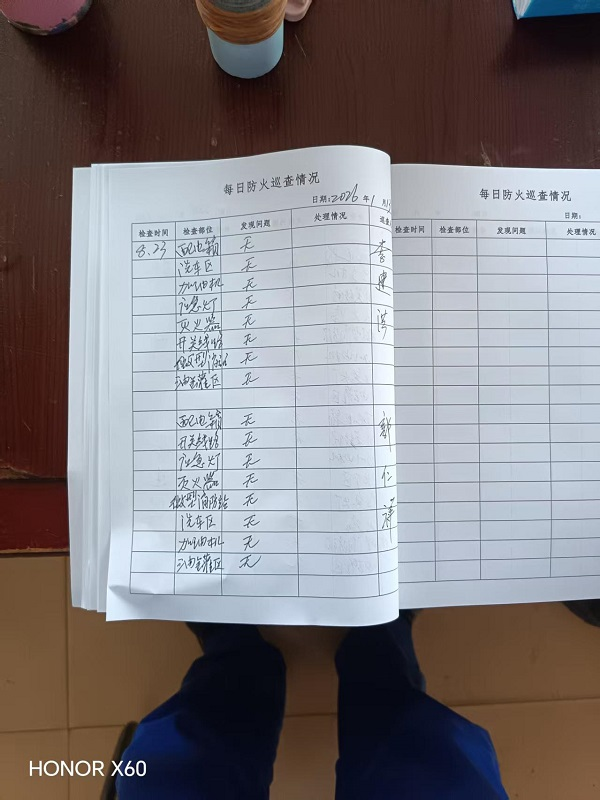 每日防火巡查情况
日期:2026年1月
检查时间 检查部位 发现问题 处理情况 巡查
8.23 配电箱 无
洗车区 无
加油机 无
应急灯 无
灭火器 无
开关线路 无
微型消 无
油罐区 无
李建
配电箱 无
开关线路 无
应急灯 无
灭火器 无
微型消防站 无
洗车区 无
加油机 无
油罐区 无
郭仁
每日防火巡查情况
日期:
检查时间 检查部位 发现问题 处理情况
HONOR X60